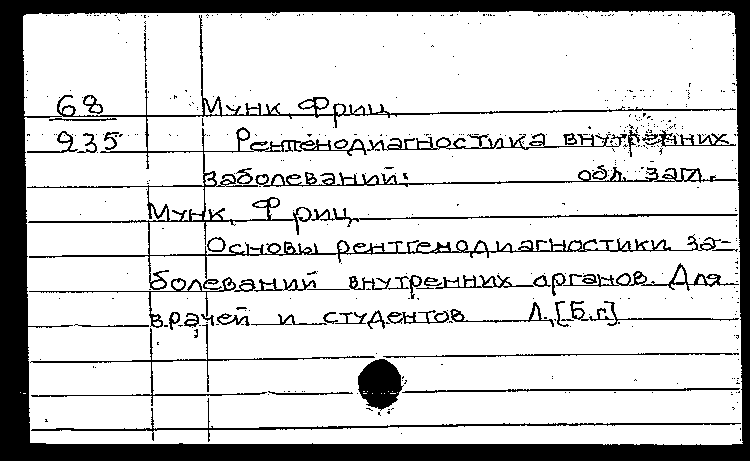 68 Мунк, Фриц.
935 Рентенодиагностика внутренних
заболеваний: обл. загл.
Мунк, Фриц.
Основы рентгенодиагностики за-
болеваний внутренних органов. Для
врачей и студентов Л, [Б.г.]